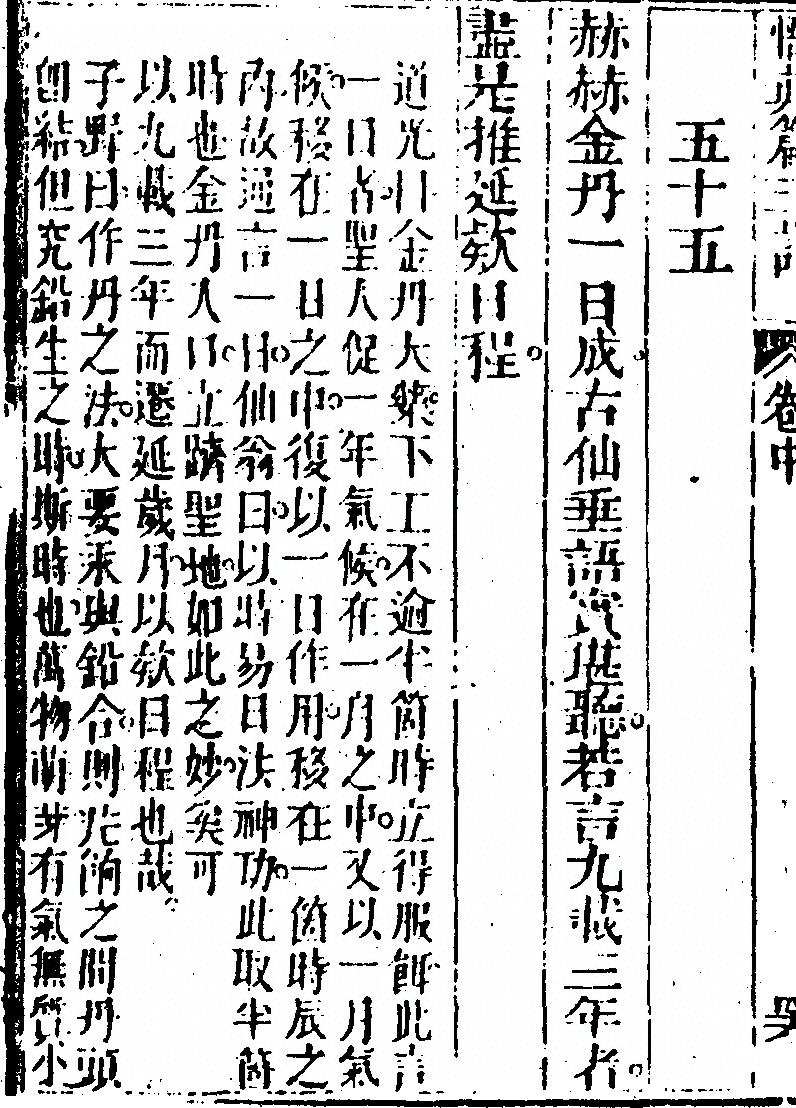 悟真篇三註 卷中
五十五
赫赫金丹一日成。古仙垂語實堪聽。若言九載三年者。
盡是推延欵日程。
道光曰金丹大藥。下工不逾半箇時立得服餌此言
一日者。聖人促一年氣候。在一月之中。又以一月氣
候。移在一日之中。復以一日作用。移在一箇時辰之
內故通言一日。仙翁曰。以時易日法神功。此取半箇
時也金丹入口。立躋聖地。如此之妙。矣可
以九載三年而遷延歲月。以欵日程也哉。
子野曰作丹之法。大要汞與鉛合。則片餉之間丹頭
卽結。但究鉛生之時。斯時也。萬物萌芽有氣無質小